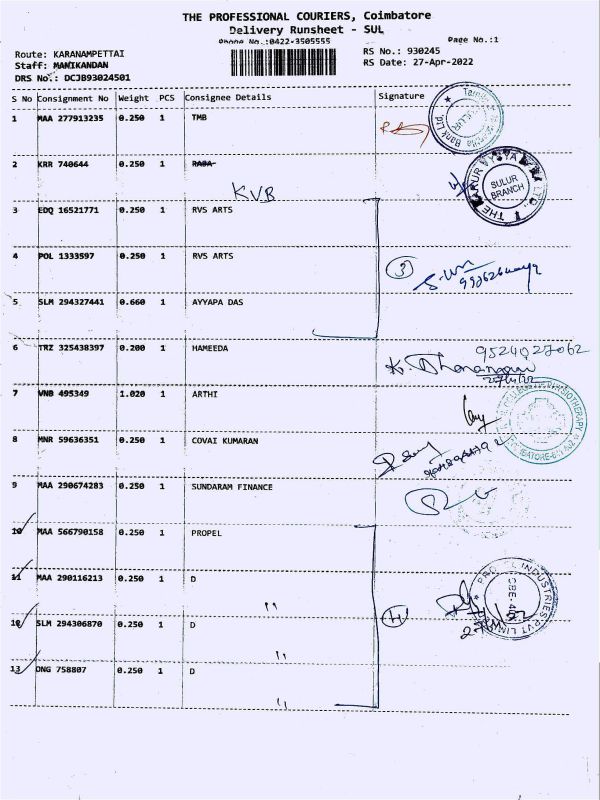 THE PROFESSIONAL COURIERS, Coimbatore
Delivery Runsheet - SUL
Phone No.:0422-3505555
Page No.:1
Route: KARANAMPETTAI
RS No.: 930245
Staff: MANIKANDAN
RS Date: 27-Apr-2022
DRS No.: DCJB93024501
S No Consignment No Weight PCS Consignee Details Signature
1 MAA 277913235 0.250 1 TMB
2 KRR 740644 0.250 1
KVB
THE KARUR VYSYA
SULUR BRANCH
3 EDQ 16521771 0.250 1 RVS ARTS
4 POL 1333597 0.250 1 RVS ARTS
3
5 SLM 294327441 0.660 1 AYYAPA DAS
6 TRZ 325438397 0.200 1 HAMEEDA
9524027062
7 VNB 495349 1.020 1 ARTHI
8 MNR 59636351 0.250 1 COVAI KUMARAN
9 MAA 290674283 0.250 1 SUNDARAM FINANCE
10 MAA 566790158 0.250 1 PROPEL
11 MAA 290116213 0.250 1 D
"
4
12 SLM 294306870 0.250 1 D
"
13 DNG 758807 0.250 1 D
"